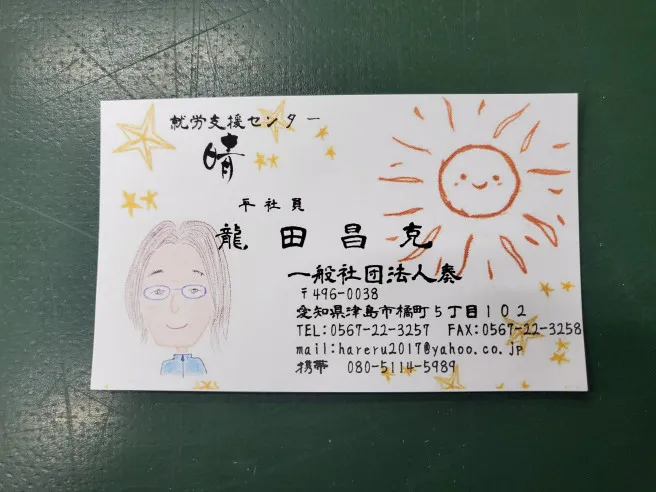 就労支援センター
晴
平社員
龍田昌克
一般社団法人奏
〒496-0038
愛知県津島市橘町5丁目102
TEL:0567-22-3257 FAX:0567-22-3258
mail:hareru2017@yahoo.co.jp
携帯 080-5114-5989